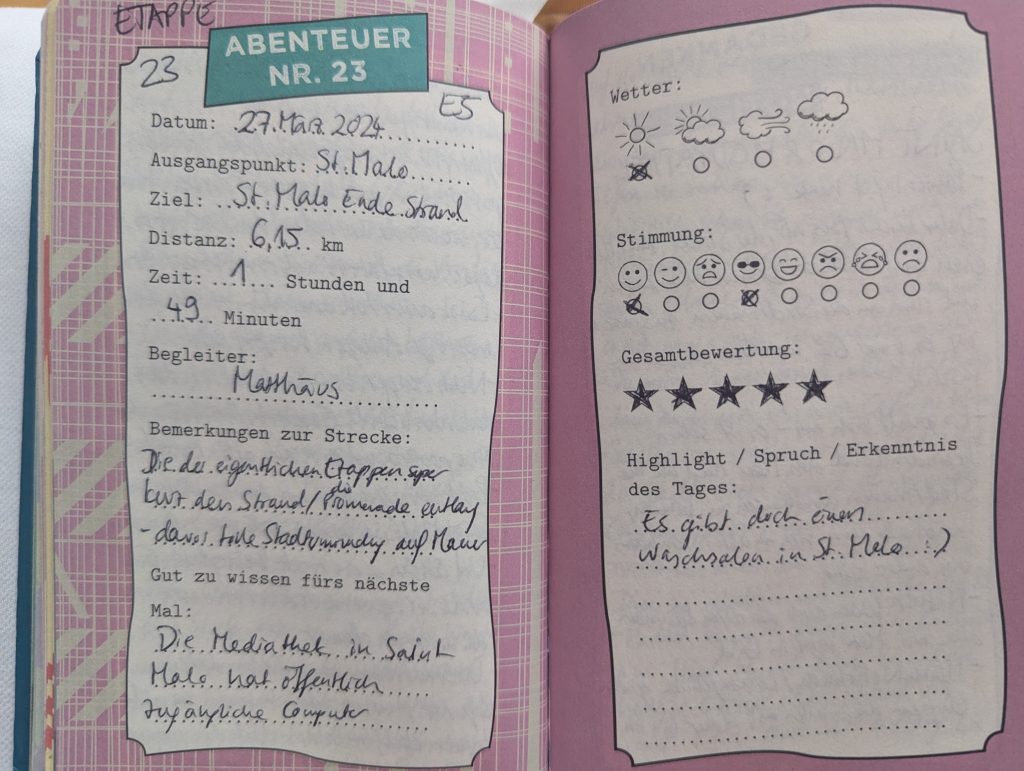 ETAPPE
ABENTEUER
NR. 23
23
E5
Datum: 27. Mai. 2024
Ausgangspunkt: St. Malo
Ziel: St. Malo Ende Strand
Distanz: 6,15 km
Zeit: 1 Stunden und
49 Minuten
Begleiter:
Matthäus
Bemerkungen zur Strecke:
Die der eigentlichen Etappen super
kurz den Strand/die Promenade entlang
- davor tolle Stadtumrundg auf Mauer
Gut zu wissen fürs nächste
Mal:
Die Mediathek in Saint
Malo hat öffentlich
zugängliche Computer
Wetter:
Stimmung:
Gesamtbewertung:
Highlight / Spruch / Erkenntnis
des Tages:
Es gibt doch einen
Waschsalon in St. Malo :)